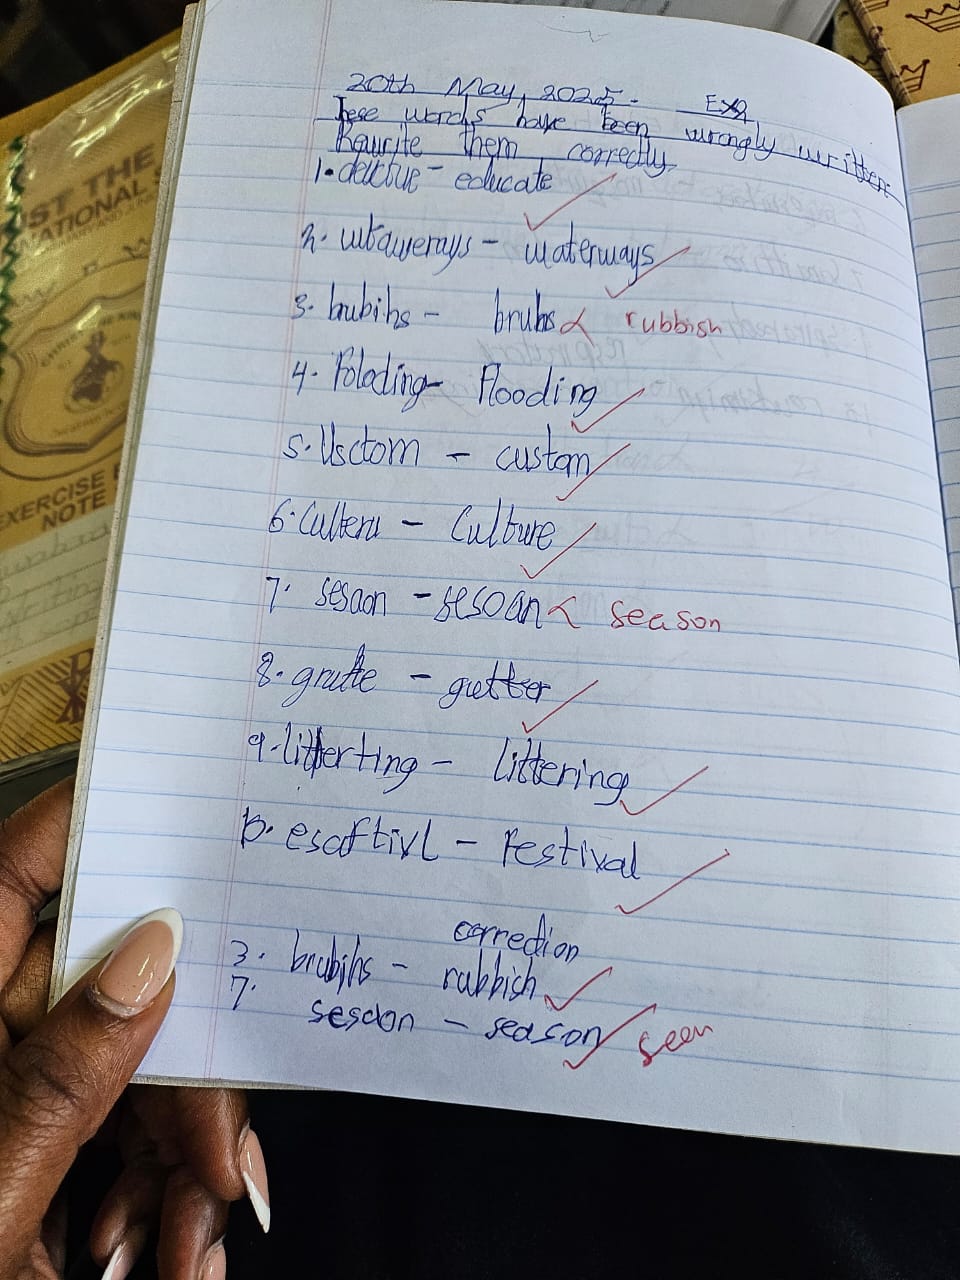 20th May, 2025. Ex2
These words have been wrongly written.
Rewrite them correctly
1. - educate
2. - waterways
3. brubihs - brubs rubbish
4. Foloding - Flooding
5. Usctom - custom
6. Culteru - Culture
7. sesaon - sesoan season
8. grutte - gutter
9. litterting - littering
10. escftivl - Festival
correction
3. brubihs - rubbish
7.
sesaon - season seen
IST THE
NATIONAL
EXERCISE
NOTE